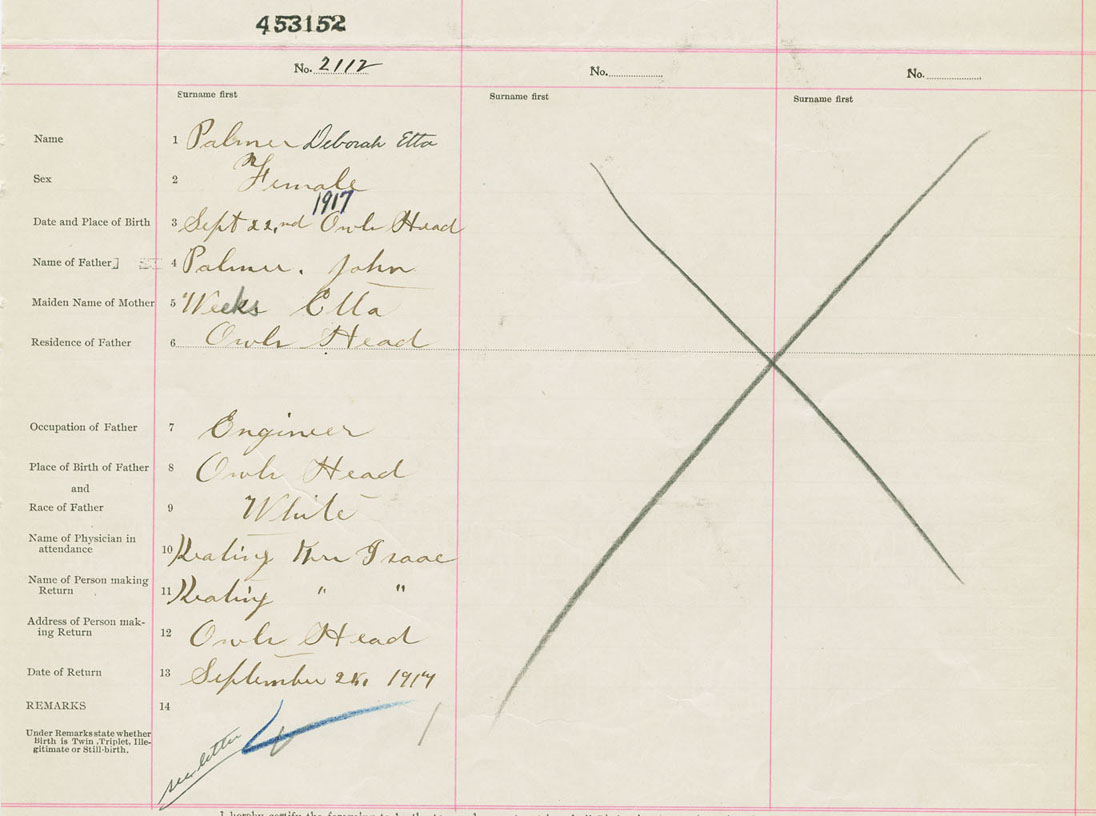 453152
No. 2112 No. No.
Surname first Surname first Surname first
Name 1 Palmer Deborah Etta
Sex 2 Female
1917
Date and Place of Birth 3 Sept 22nd Owls Head
Name of Father 4 Palmer. John
Maiden Name of Mother 5 Weeks Etta
Residence of Father 6 Owls Head
Occupation of Father 7 Engineer
Place of Birth of Father 8 Owls Head
and
Race of Father 9 White
Name of Physician in
attendance 10 Keating Mrs Isaac
Name of Person making
Return 11 Keating " "
Address of Person mak-
ing Return 12 Owls Head
Date of Return 13 September 1917
REMARKS 14
Under Remarks state whether
Birth is Twin, Triplet, Ille-
gitimate or Still-birth.
see letter